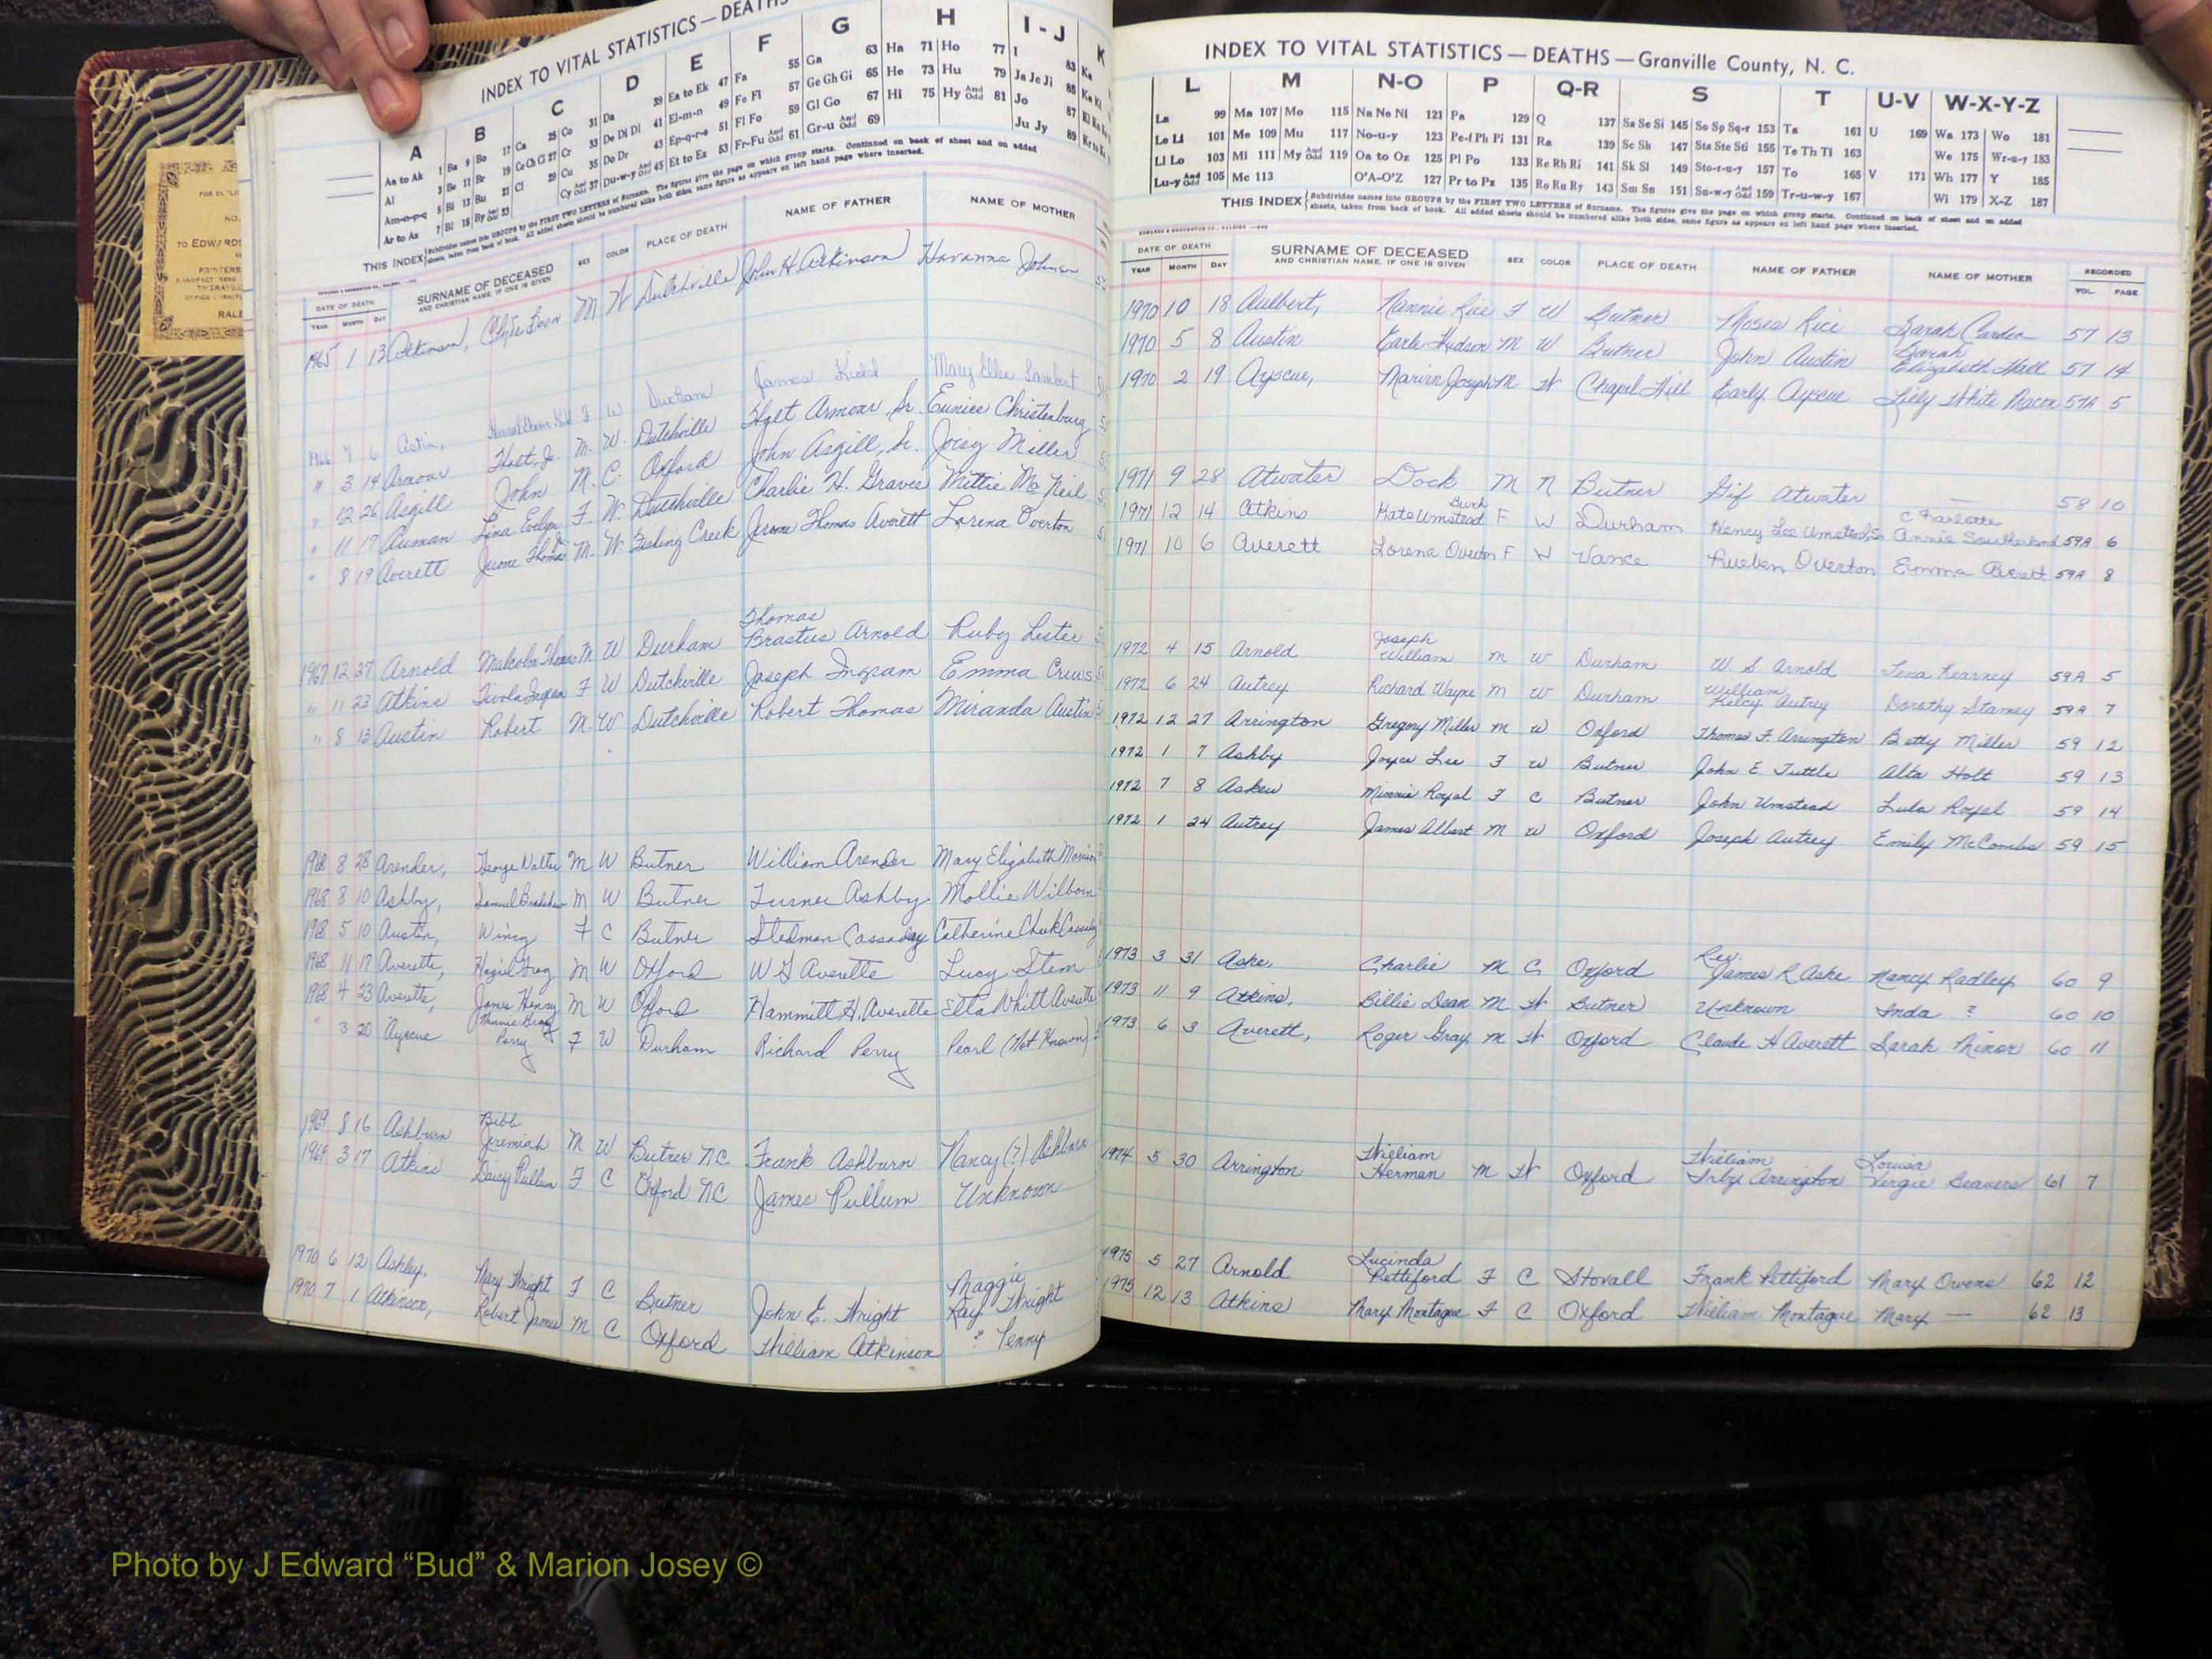 INDEX TO VITAL STATISTICS — DEATHS
A B C D E F G H I-J K
Aa to Ak 1 Ba 9 Bo 17 Ca 25 Co 31 Da 39 Ea to Ek 47 Fa 55 Ga 63 Ha 71 Ho 77 I 83 Ka
Al 3 Be 11 Br 19 Ce Ch Ci 27 Cr 33 De Di Dl 41 El-m-n 49 Fe Fi 57 Ge Gh Gi 65 He 73 Hu 79 Ja Je Ji 85
Am-n-p-q 5 Bi 13 Bu 21 Cl 29 Cu 35 Do Dr 43 Ep-q-r-s 51 Fl Fo 59 Gl Go 67 Hi 75 Hy And Odd 81 Jo 87
Ar to Az 7 Bl 15 By And Odd 23 Cy And Odd 37 Du-w-y And Odd 45 Et to Ez 53 Fr-Fu And Odd 61 Gr-u And Odd 69 Ju Jy 89
THIS INDEX Subdivides names into GROUPS by the FIRST TWO LETTERS of Surname. The figures give the page on which group starts. Continued on back of sheet and on added
sheets, taken from back of book. All added sheets should be numbered alike both sides, same figure as appears on left hand page where inserted.
DATE OF DEATH SURNAME OF DECEASED SEX COLOR PLACE OF DEATH NAME OF FATHER NAME OF MOTHER
YEAR MONTH DAY AND CHRISTIAN NAME, IF ONE IS GIVEN
1965 1 13 Atkinson, M W Dutchville John H. Atkinson Havanna Johnson
1966 7 6 F W Durham James Kidd Mary Ellen Lambert
" 3 14 Armour Holt, Jr. M. W. Dutchville Holt Armour, Sr. Eunice Christenbury
" 12 26 Asgill John M. C. Oxford John Asgill, Sr. Josey Miller
" 11 17 Auman Lina Evelyn F. W. Dutchville Charlie H. Graves Mittie McNeil
" 8 19 Averett Jerome Thomas Jr. M. W. Fishing Creek Jerome Thomas Averett Lorena Overton
1967 12 27 Arnold Malcolm Thomas M W Durham Thomas Brastus Arnold Ruby Lester
" 11 23 Atkins Tivola Ingram F W Dutchville Joseph Ingram Emma Crews
" 8 13 Austin Robert M. W Dutchville Robert Thomas Miranda Austin
1968 8 28 Arender, George Walter M W Butner William Arender Mary Elizabeth Morrison
1968 8 10 Ashby, Samuel Bradshaw M W Butner Turner Ashby Mollie Wilborn
1968 5 10 Austin, Wincy F C Butner Stedman Cassaday Catherine Cheek Cassady
1968 11 17 Averette, Gray M W Oxford W G Averette Lucy Stem
1968 4 23 Averette, James Henry M W Oxford Hammitt H. Averette Etta Whitt Averette
" 3 20 Ayscue Minnie Gray Perry F W Durham Richard Perry Pearl (Not Known)
1969 8 16 Ashburn Bibb Jeremiah M W Butner NC. Frank Ashburn Nancy (?) Ashburn
1969 3 17 Atkins Daisy Pullum F C Oxford NC James Pullum Unknown
1970 6 12 Ashley. Mary Wright F C Butner John E. Wright Maggie Ray Wright
1970 7 1 Atkinson, Robert James M C Oxford William Atkinson ? Penny
INDEX TO VITAL STATISTICS — DEATHS — Granville County, N. C.
L M N-O P Q-R S T U-V W-X-Y-Z
La 99 Ma 107 Mo 115 Na Ne Ni 121 Pa 129 Q 137 Sa Se Si 145 So Sp Sq-r 153 Ta 161 U 169 Wa 173 Wo 181
Le Li 101 Me 109 Mu 117 No-u-y 123 Pe-f Ph Pi 131 Ra 139 Sc Sh 147 Sta Ste Sti 155 Te Th Ti 163 We 175 Wr-u-y 183
Ll Lo 103 Mi 111 My And Odd 119 Oa to Oz 125 Pl Po 133 Re Rh Ri 141 Sk Sl 149 Sto-r-u-y 157 To 165 V 171 Wh 177 Y 185
Lu-y And Odd 105 Mc 113 O'A-O'Z 127 Pr to Pz 135 Ro Ru Ry 143 Sm Sn 151 Su-w-y And Odd 159 Tr-u-w-y 167 Wi 179 X-Z 187
THIS INDEX Subdivides names into GROUPS by the FIRST TWO LETTERS of Surname. The figures give the page on which group starts. Continued on back of sheet and on added
sheets, taken from back of book. All added sheets should be numbered alike both sides, same figure as appears on left hand page where inserted.
DATE OF DEATH SURNAME OF DECEASED SEX COLOR PLACE OF DEATH NAME OF FATHER NAME OF MOTHER RECORDED
YEAR MONTH DAY AND CHRISTIAN NAME, IF ONE IS GIVEN VOL. PAGE
1970 10 18 Aulbert, Nannie Rice F W Butner Moses Rice Sarah Carden 57 13
1970 5 8 Austin Earle Hudson M W Butner John Austin Sarah Elizabeth Hall 57 14
1970 2 19 Ayscue, Marvin Joseph M W Chapel Hill Early Ayscue Lilly White Macon 57A 5
1971 9 28 Atwater Dock M N Butner Gif Atwater — 58 10
1971 12 14 Atkins Kate Umstead Burch F W Durham Henry Lee Umstead, Sr. Charlotte Annie Southerland 59A 6
1971 10 6 Averett Lorena Overton F W Vance Rueben Overton Emma Averett 59A 8
1972 4 15 Arnold Joseph William M W Durham W. S. Arnold Lena Kearney 59A 5
1972 6 24 Autrey Richard Wayne M W Durham William Kilcy Autrey Dorothy Stamey 59A 7
1972 12 27 Arrington Gregory Miller M W Oxford Thomas F. Arrington Betty Miller 59 12
1972 1 7 Ashby Joyce Lee F W Butner John E. Tuttle Alta Holt 59 13
1972 7 8 Askew Minnie Royal F C Butner John Umstead Lula Royal 59 14
1972 1 24 Autrey James Albert M W Oxford Joseph Autrey Emily McCombs 59 15
1973 3 31 Aske, Charlie M C Oxford Rev. James R Aske Nancy Radley 60 9
1973 11 9 Atkins, Billie Dean M W Butner Unknown Inda ? 60 10
1973 6 3 Averett, Roger Gray M W Oxford Claude H Averett Sarah Minor 60 11
1974 5 30 Arrington William Herman M W Oxford William Irby Arrington Louisa Vergie Beavers 61 7
1975 5 27 Arnold Lucinda Pettiford F C Stovall Frank Pettiford Mary Owens 62 12
1975 12 13 Atkins Mary Montague F C Oxford William Montague Mary — 62 13
Photo by J Edward “Bud” & Marion Josey ©